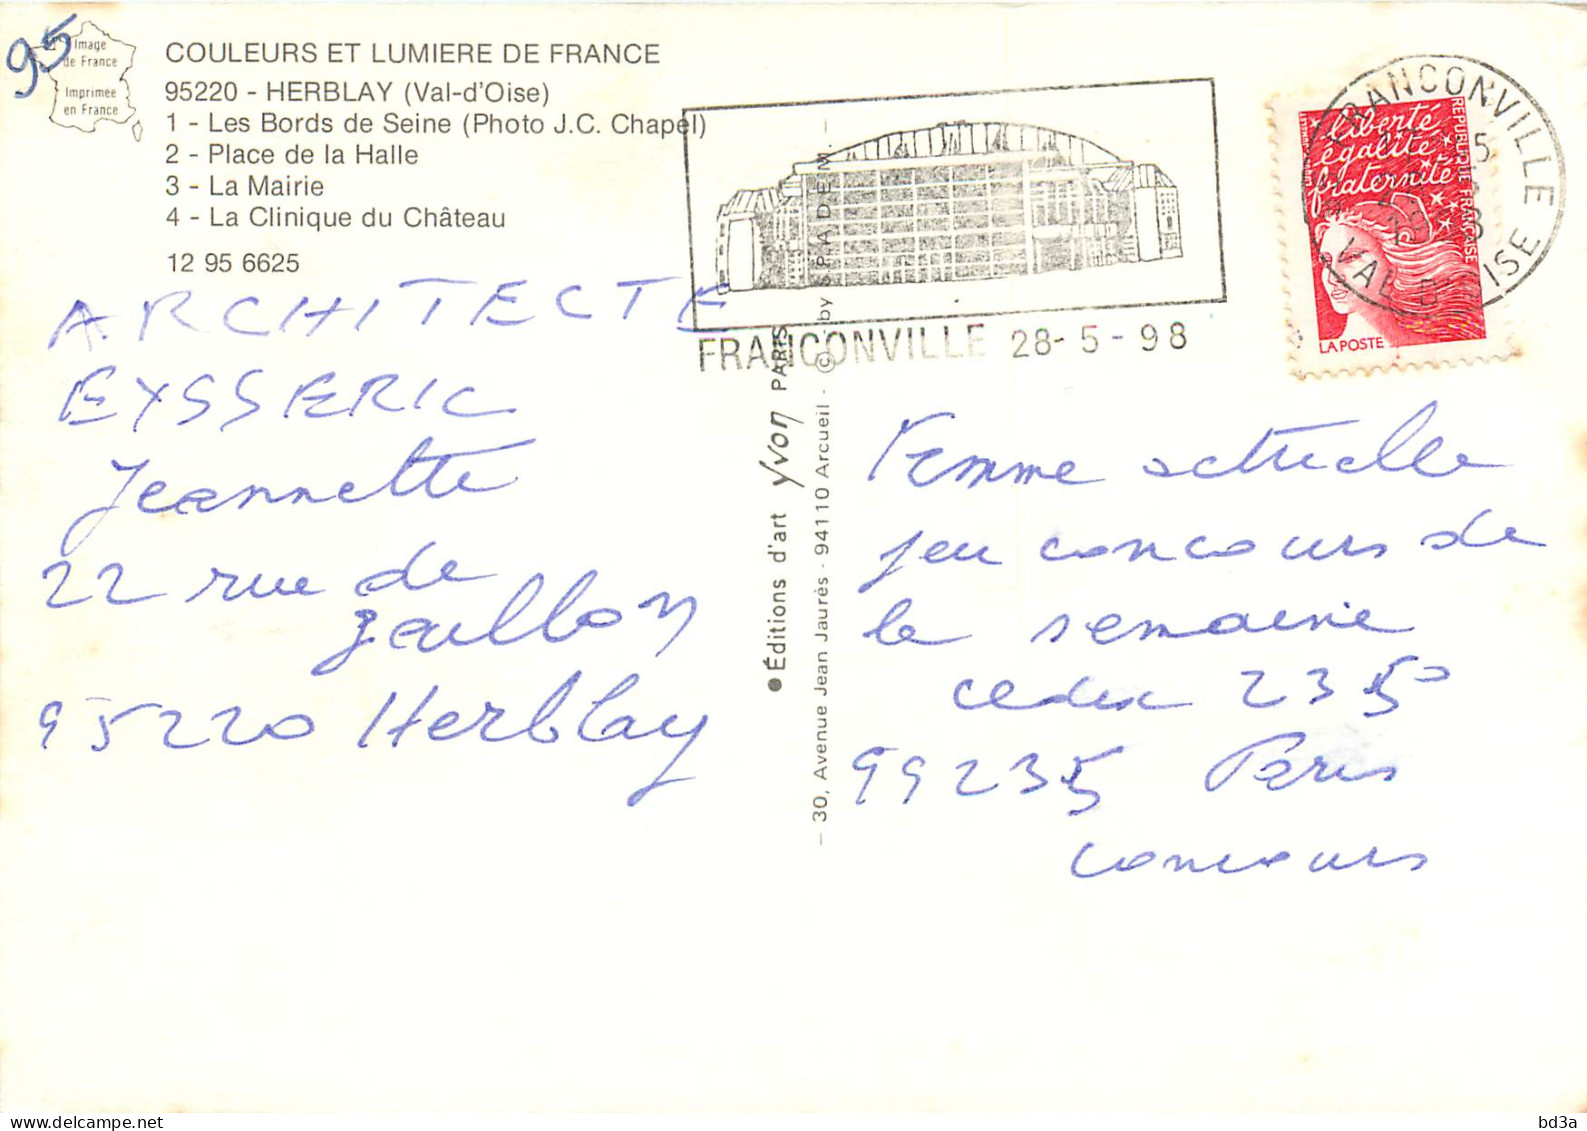 95
Image
de France
Imprimée
en France
COULEURS ET LUMIERE DE FRANCE
95220 - HERBLAY (Val-d'Oise)
1 - Les Bords de Seine (Photo J.C. Chapel)
2 - Place de la Halle
3 - La Mairie
4 - La Clinique du Château
12 95 6625
ARCHITECTE
EYSSERIC
Jeannette
22 rue de
Gaillon
95220 Herblay
●Éditions d'art Yvon PARIS
– 30, Avenue Jean Jaurès - 94110 Arcueil - © by S.P.A.D.E.M. –
FRANCONVILLE 28-5-98
FRANCONVILLE
VAL D'OISE
liberté
égalité
fraternité
REPUBLIQUE FRANÇAISE
LA POSTE
Femme actuelle
jeu concours de
la semaine
cedex 2350
99235 Paris
concours
bd3a